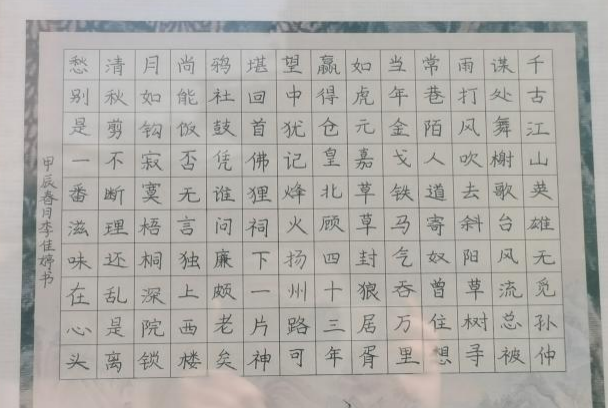 千古江山英雄无觅孙仲
谋处舞榭歌台风流总被
雨打风吹去斜阳草树寻
常巷陌人道寄奴曾住想
当年金戈铁马气吞万里
如虎元嘉草草封狼居胥
赢得仓皇北顾四十三年
望中犹记烽火扬州路可
堪回首佛狸祠下一片神
鸦社鼓凭谁问廉颇老矣
尚能饭否无言独上西楼
月如钩寂寞梧桐深院锁
清秋剪不断理还乱是离
愁别是一番滋味在心头
甲辰春月李佳婷书